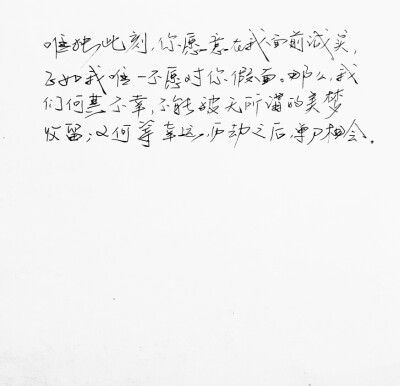 唯独此刻，你愿意在我面前减笑，
正如我唯一不愿对你假面。那么，我
们何其不幸，不能被无所谓的美梦
收留；又何等幸运，历劫之后，刹那相会。